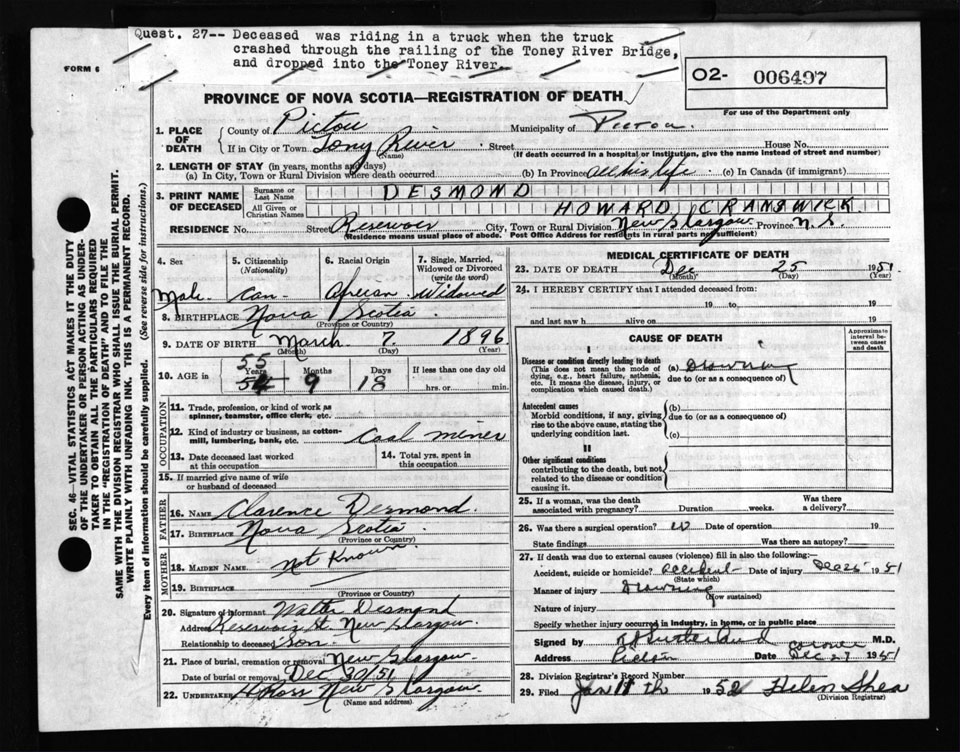 Quest. 27-- Deceased was riding in a truck when the truck
crashed through the railing of the Toney River Bridge,
and dropped into the Toney River.
FORM 6
O2- 006497
PROVINCE OF NOVA SCOTIA—REGISTRATION OF DEATH
For use of the Department only
1. PLACE OF DEATH
County of Pictou Municipality of Pictou
If in City or Town Tony River Street House No.
(Name) (If death occurred in a hospital or institution, give the name instead of street and number)
2. LENGTH OF STAY (in years, months and days)
(a) In City, Town or Rural Division where death occurred (b) In Province all his life (c) In Canada (if immigrant)
3. PRINT NAME OF DECEASED
Surname or Last Name DESMOND
All Given or Christian Names HOWARD CRANSWICK
RESIDENCE No. Street Reservoir City, Town or Rural Division New Glasgow Province N.S.
(Residence means usual place of abode. Post Office Address for residents in rural parts not sufficient)
4. Sex
Male
5. Citizenship
(Nationality)
Can
6. Racial Origin
African
7. Single, Married, Widowed or Divorced
(write the word)
Widowed
8. BIRTHPLACE Nova Scotia
(Province or Country)
9. DATE OF BIRTH March 7 1896
(Month) (Day) (Year)
10. AGE in 55
54 Years 9 Months 18 Days
If less than one day old
hrs. or min.
OCCUPATION
11. Trade, profession, or kind of work as
spinner, teamster, office clerk, etc.
12. Kind of industry or business, as cotton-
mill, lumbering, bank, etc. Coal miner
13. Date deceased last worked
at this occupation
14. Total yrs. spent in
this occupation
15. If married give name of wife
or husband of deceased
FATHER
16. NAME Clarence Desmond
17. BIRTHPLACE Nova Scotia
(Province or Country)
MOTHER
18. MAIDEN NAME Not Known
19. BIRTHPLACE
(Province or Country)
20. Signature of informant Walter Desmond
Address Reservoir St. New Glasgow
Relationship to deceased Son
21. Place of burial, cremation or removal New Glasgow
Date of burial or removal Dec 30/51
22. UNDERTAKER H Ross New Glasgow
(Name and address)
MEDICAL CERTIFICATE OF DEATH
23. DATE OF DEATH Dec 25 1951
(Month) (Day)
24. I HEREBY CERTIFY that I attended deceased from:
19 to 19
and last saw h alive on 19
CAUSE OF DEATH
Approximate interval between onset and death
I
Disease or condition directly leading to death
(This does not mean the mode of
dying, e.g., heart failure, asthenia,
etc. It means the disease, injury, or
complication which caused death.)
(a) Drowning
due to (or as a consequence of)
Antecedent causes
Morbid conditions, if any, giving
rise to the above cause, stating the
underlying condition last.
(b)
due to (or as a consequence of)
(c)
II
Other significant conditions
contributing to the death, but not
related to the disease or condition
causing it.
25. If a woman, was the death
associated with pregnancy? Duration weeks. Was there a delivery?
26. Was there a surgical operation? Date of operation 19
State findings Was there an autopsy?
27. If death was due to external causes (violence) fill in also the following:
Accident, suicide or homicide? Accident Date of injury Dec 25 1951
(State which)
Manner of injury Drowning
(How sustained)
Nature of injury
Specify whether injury occurred in industry, in home, or in public place
Signed by M.D.
Coroner
Address Pictou Date Dec 27 1951
28. Division Registrar's Record Number
29. Filed Jan 11th 1952 Helen Shea
(Division Registrar)
SEC. 46—VITAL STATISTICS ACT MAKES IT THE DUTY
OF THE UNDERTAKER OR PERSON ACTING AS UNDER-
TAKER TO OBTAIN ALL THE PARTICULARS REQUIRED
IN THE "REGISTRATION OF DEATH" AND TO FILE THE
SAME WITH THE DIVISION REGISTRAR WHO SHALL ISSUE THE BURIAL PERMIT.
WRITE PLAINLY WITH UNFADING INK. THIS IS A PERMANENT RECORD.
Every item of information should be carefully supplied. (See reverse side for instructions.)